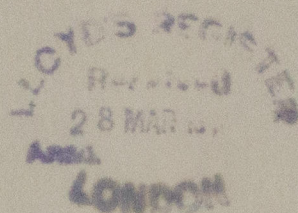 LLOYD'S REGISTER
Received
28 MAR
LONDON